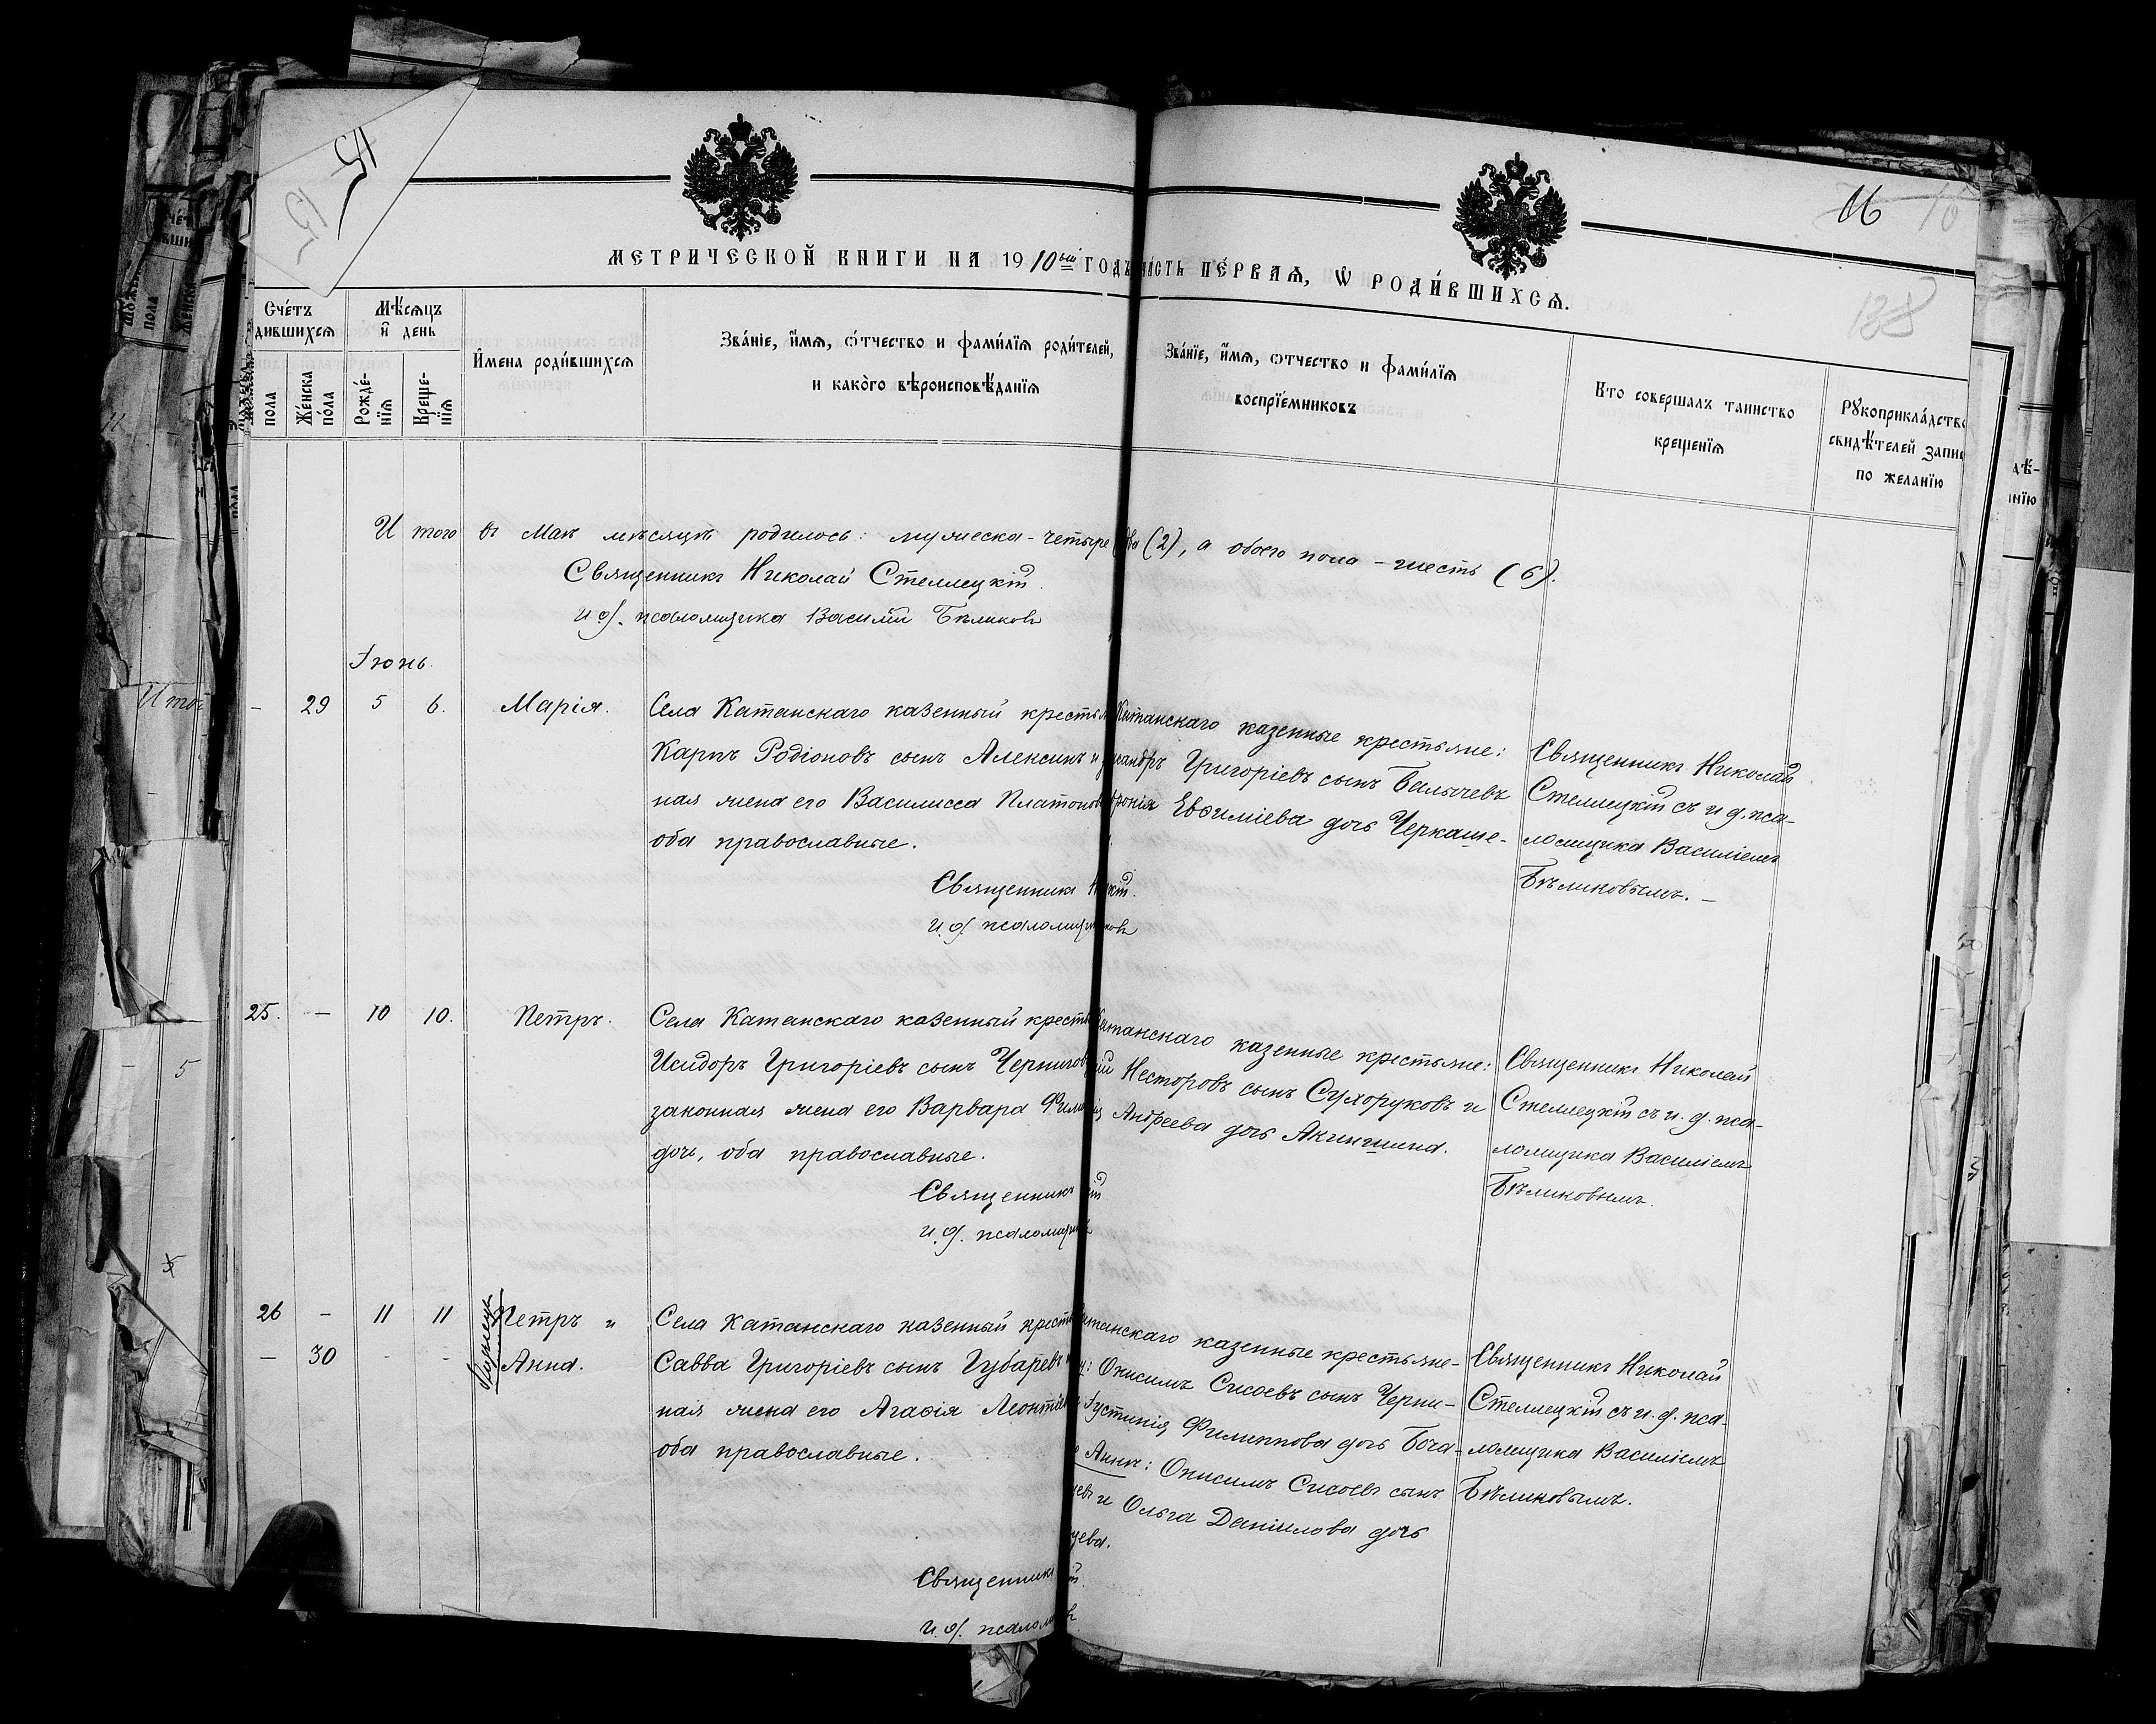 16
138
МЕТРИЧЕСКОЙ КНИГИ НА 1910ый ГОДЪ ЧАСТЬ ПЕРВАЯ, Ѡ РОДИВШИХСЯ.
Счетъ
дившихся
Мѣсяцъ
и день
пола
Женска
пола
Рожде-
нія
Креще-
нія
Имена родившихся
Званіе, имя, отчество и фамилія родителей,
и какого вѣроисповѣданія
Званіе, имя, отчество и фамилія
воспріемниковъ
Кто совершалъ таинство
крещенія
Рукоприкладство
свидѣтелей запи
по желанію
Итого въ Маѣ мѣсяцѣ родилось: мужеска - четыре два (2), а обоего пола - шесть (6).
Священникъ Николай Стеллецкій.
и д. псаломщика Василій Бѣликовъ
Іюнь.
- 29 5 6. Марія.
Села Катанскаго казенный кресть
Карпъ Родіоновъ сынъ Алексинъ и
ная жена его Василисса Платонов
оба православные.
Священникъ
и. д. псаломщ
Катанскаго казенные крестьяне:
Григоріевъ сынъ Балычевъ
Евѳиміева дочь Черкаше-
Священникъ Николай
Стеллецкій съ и д. пса-
ломщика Василіемъ
Бѣликовымъ. -
25. - 10 10. Петръ.
Села Катанскаго казенный кресть
Исидоръ Григоріевъ сынъ Чернигов
законная жена его Варвара Фили
дочь, оба православные.
Священникъ
и. д. псаломщи
Катанскаго казенные крестьяне:
Несторовъ сынъ Сухоруковъ и
Андреева дочь Акиншина.
Священникъ Николай
Стеллецкій съ и. д. пса-
ломщика Василіемъ
Бѣликовымъ.
26 - 11 11 Петръ и
- 30 - - Анна.
Близнецы
Села Катанскаго казенный кресть
Савва Григоріевъ сынъ Губаревъ
ная жена его Агаѳія Леонтіе
оба православные.
Священникъ
и. д. псалом
Катанскаго казенные крестьяне-
Онисимъ Сисоевъ сынъ Черни-
Іустинія Филиппова дочь Боча-
Аннѣ: Онисимъ Сисоевъ сынъ
и Ольга Даніилова дочь
цева.
Священникъ Николай
Стеллецкій съ и. д. пса-
ломщика Василіемъ
Бѣликовымъ.